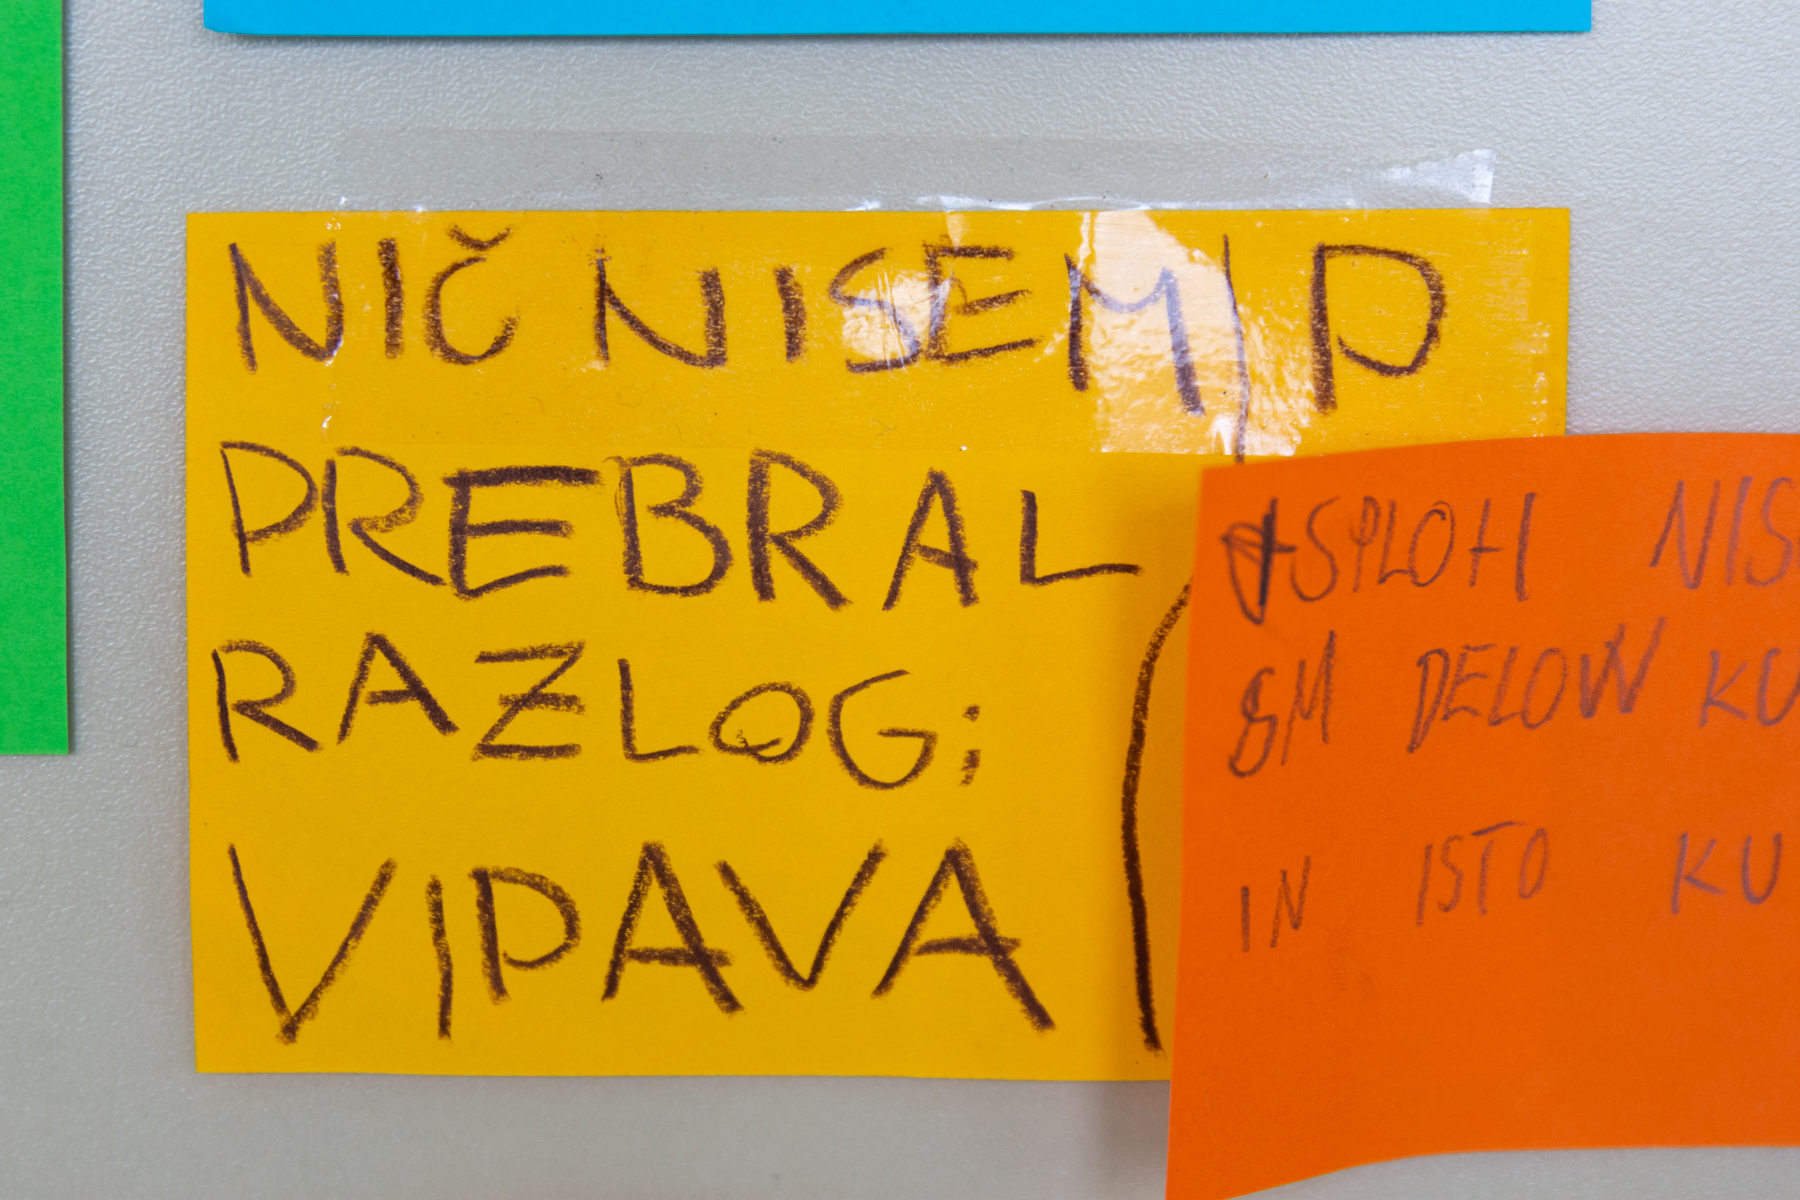 NIČ NISEM P
PREBRAL
RAZLOG;
VIPAVA
SPLOH NIS
SM DELOW KU
IN ISTO KU